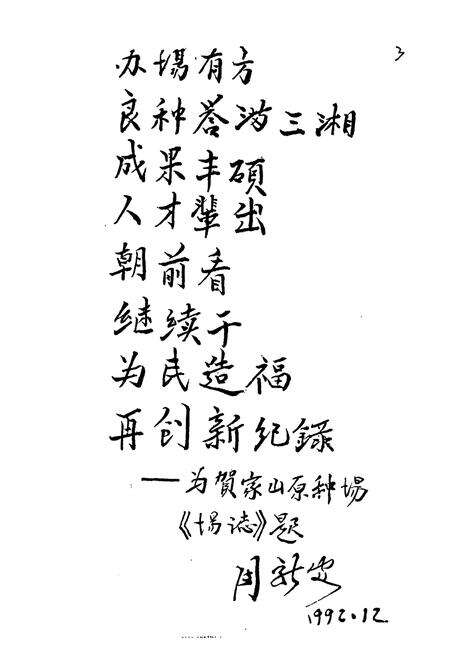 3
办場有方
良种誉满三湘
成果丰硕
人才輩出
朝前看
继续干
为民造福
再创新纪録
——为賀家山原种場
《場誌》题
周新
1992.12